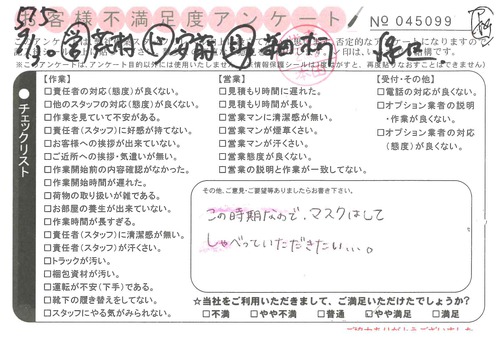 お客様不満足度アンケート
№ 045099
チェックリスト
【作業】
□責任者の対応(態度)が良くない。
□他のスタッフの対応(態度)が良くない。
□作業を見ていて不安がある。
□責任者(スタッフ)に好感が持てない。
□お客様への挨拶が出来ていない。
□ご近所への挨拶・気遣いが無い。
□作業開始前の内容確認がなかった。
□作業開始時間が遅れた。
□荷物の取り扱いが雑である。
□お部屋の養生が出来ていない。
□作業時間が長すぎる。
□責任者(スタッフ)に清潔感が無い。
□責任者(スタッフ)が汗くさい。
□トラックが汚い。
□梱包資材が汚い。
□運転が不安(下手)である。
□靴下の履き替えをしてない。
□スタッフにやる気がみられない。
【営業】
□見積もり時間に遅れた。
□見積もり時間が長い。
□営業マンに清潔感が無い。
□営業マンが煙草くさい。
□営業マンが汗くさい。
□営業態度が良くない。
□営業の説明と作業が一致してない。
【受付・その他】
□電話の対応が良くない。
□オプション業者の説明
・作業が良くない。
□オプション業者の対応
(態度)が良くない。
その他、ご意見・ご要望等ありましたらお書き下さい。
この時期なので、マスクはして
しゃべっていただきたい…。
☆当社をご利用いただきまして、ご満足いただけたでしょうか?
□不満 □やや不満 □普通 ☑やや満足 □満足